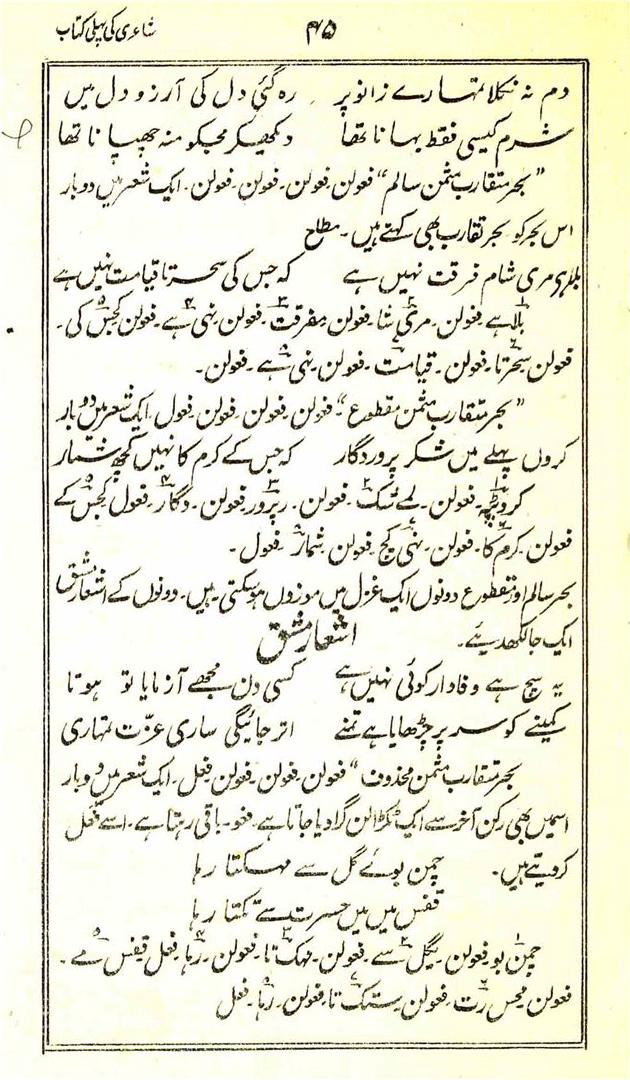 شاعری کی پہلی کتاب
۴۵
دم نہ نکلا تمہارے زانو پر رہ گئی دل کی آرزو دل میں
شرم کیسی فقط بہانا تھا دیکھکر مجکو منہ چھپانا تھا
”بحر متقارب مثمن سالم“ فعولن فعولن۔ فعولن۔ فعولن۔ ایک شعر میں دو بار
اس بحر کو بحر تقارب بھی کہتے ہیں۔
بلا ہے مری شام فرقت نہیں ہے کہ جس کی سحر تا قیامت نہیں ہے
بلا ہے۔ فعولن۔ مری شا۔ فعولن مفرقت۔ فعولن۔ نہی ہے۔ فعولن کجس کی۔
فعولن سحرتا۔ فعولن۔ قیامت۔ فعولن۔ نہی ہے۔ فعولن۔
”بحر متقارب مثمن مقطوع“۔ فعولن۔ فعولن۔ فعولن۔ فعول۔ ایک شعر میں دو بار
کروں پہلے میں شکر پروردگار کہ جس کے کرم کا نہیں کچھ شمار
فعولن۔ فعولن۔ رپرور فعولن۔ دگار۔ فعول کجس کے
فعولن۔ کرم کا۔ فعولن۔ نہی کچ۔ فعولن۔ شمار۔ فعول۔
بحر سالم اور مقطوع دونوں ایک غزل میں موزوں ہو سکتی ہیں۔ دونوں کے اشعار مشق
ایک جا لکھدیئے۔
اشعار مشق
یہ سچ ہے وفادار کوئی نہیں ہے کسی دن مجھے آزمایا تو ہوتا
کمینے کو سر پر چڑھایا ہے تمنے اتر جائیگی ساری عزّت تمہاری
بحر متقارب مثمن محذوف“ فعولن۔ فعولن۔ فعولن۔ فعل۔ ایک شعر میں دو بار
اسمیں بھی رکن آخر سے ایک ٹکڑا لن گرا دیا جاتا ہے۔ فعو۔ باقی رہتا ہے۔ اسے فعل
کر دیتے ہیں۔ چمن بوئے گل سے مہکتا رہا
قفس میں میں حسرت سے تکتا رہا
چمن بو۔ فعولن۔ ئیگل سے۔ فعولن۔ مہکتا۔ فعولن۔ رہا۔ فعل قفس مے۔
فعولن۔ میحسرت۔ فعولن۔ ستکتا۔ فعولن۔ رہا۔ فعل